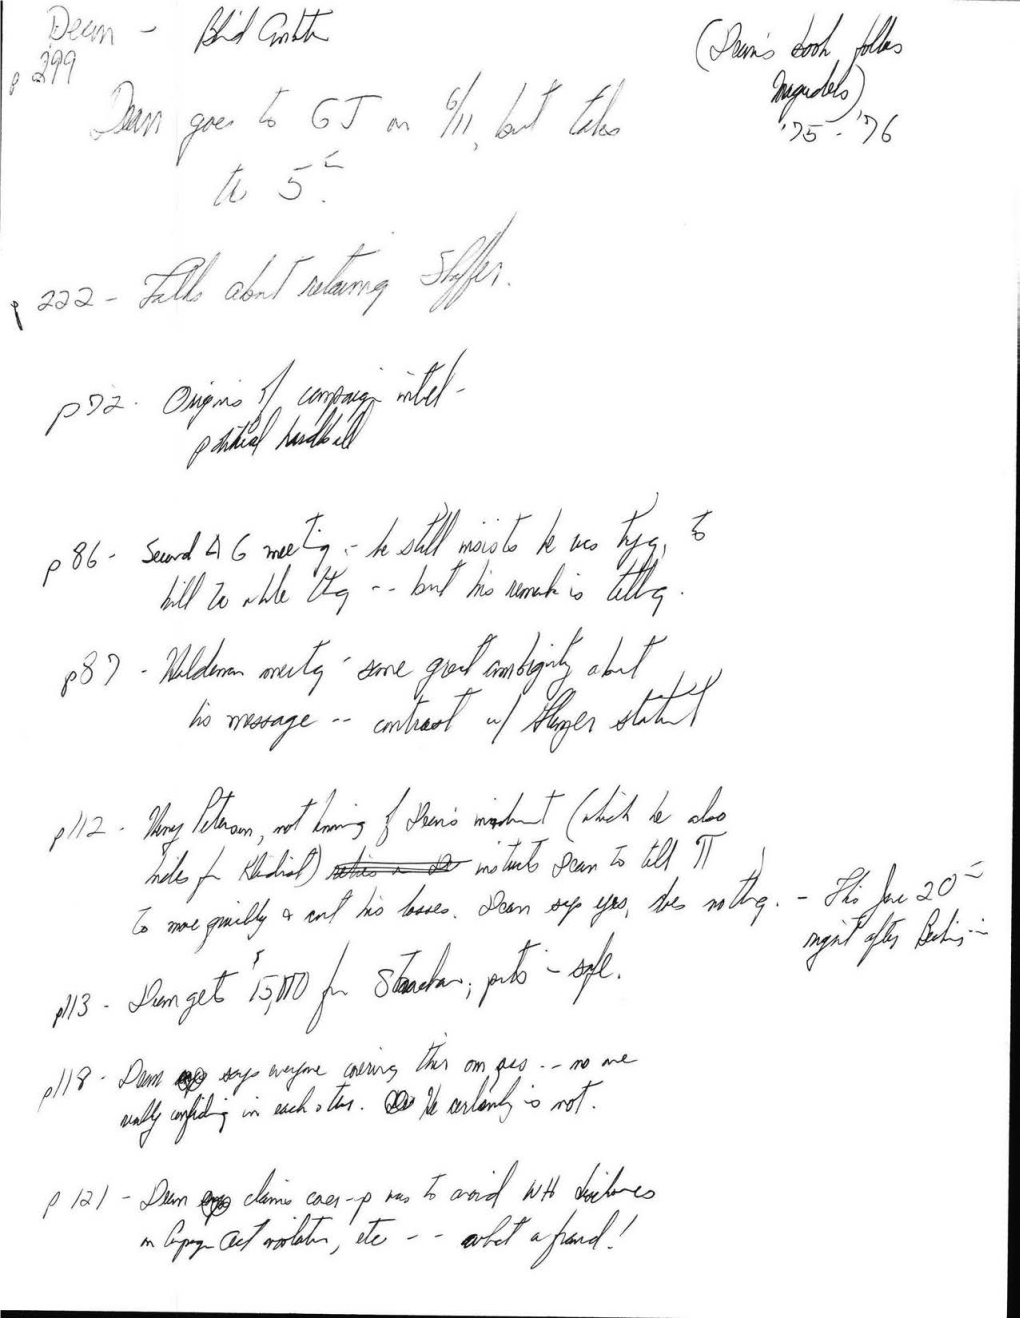 Dean - Blind Ambition
p 299
(Dean's book follows
Magruder's)
'75 - '76
Dean goes to GJ on 6/11, but takes
the 5th.
p 222 - Talks about retaining Shaffer.
p 72 - Origins of campaign intel -
political hardball
p 86 - Second AG meeting - he still insists he was trying to
kill the whole thing -- but his remark is telling.
p 87 - Haldeman meeting - some great ambiguity about
his message -- contrast w/ statement
p 112 - Henry Petersen, not knowing of Dean's involvement (which he also
hides from Kleindienst) instructs Dean to tell
to move quickly & cut his losses. Dean says yes, does nothing. - This June 20th
night after
p 113 - Dean gets $15,000 from Strachan; puts in safe.
p 118 - Dean says everyone covering their own -- no one
really confiding in each other. He certainly is not.
p 121 - Dean claims cover-up was to avoid WH disclosures
on Campaign Act violations, etc -- what a fraud!